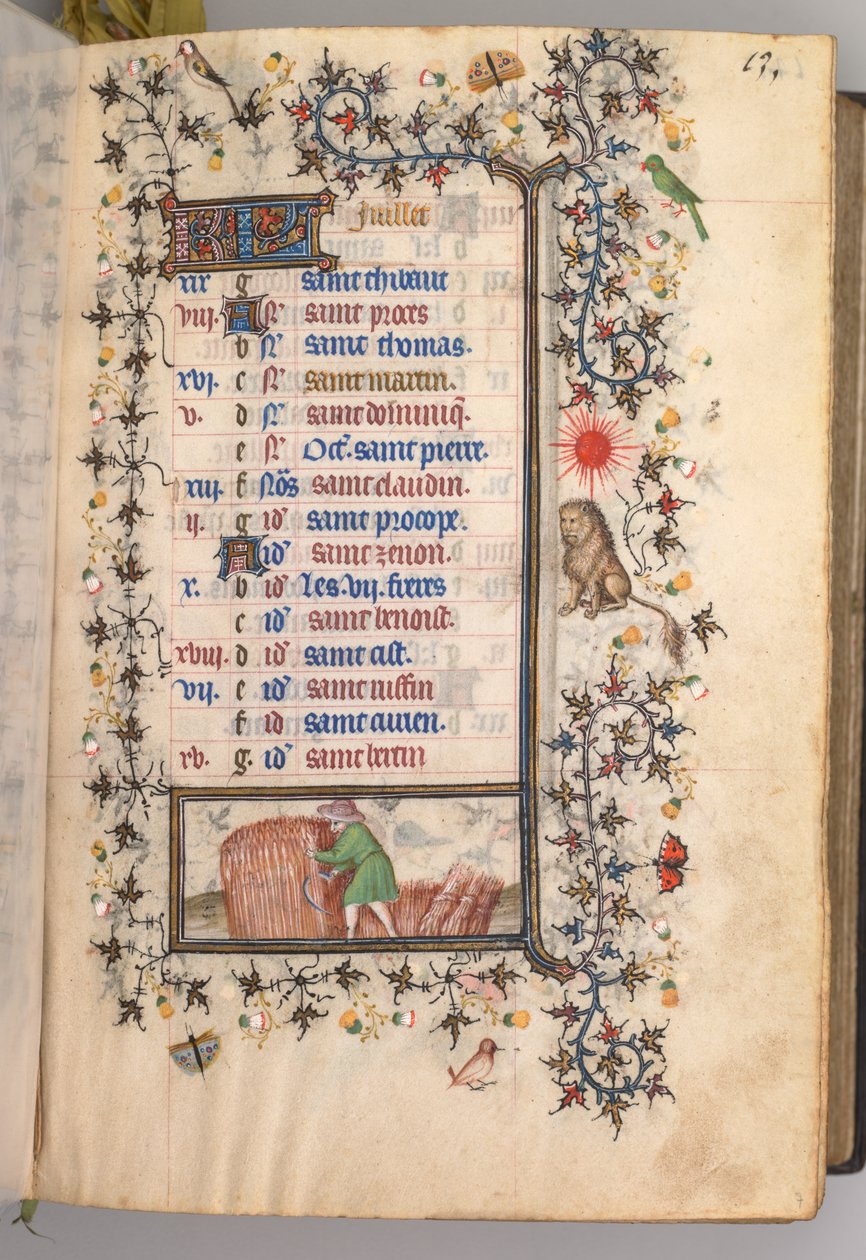 13,
KL Juillet
xix g saint thibaut
viii. A N̄. saint proces
b N̄. saint thomas.
xvi. c N̄. saint martin.
v. d N̄. saint dominiq̄.
e N̄. Oct̄. saint pierre.
xiii. f Nōs saint claudin.
ii. g id̄ saint procope.
A id̄ saint zenon.
x. b id̄ Les .vii. freres
c id̄ saint benoist.
xviii. d id̄ saint cist.
vii. e id̄ saint
f id saint
xv. g. id̄ saint bertin
7